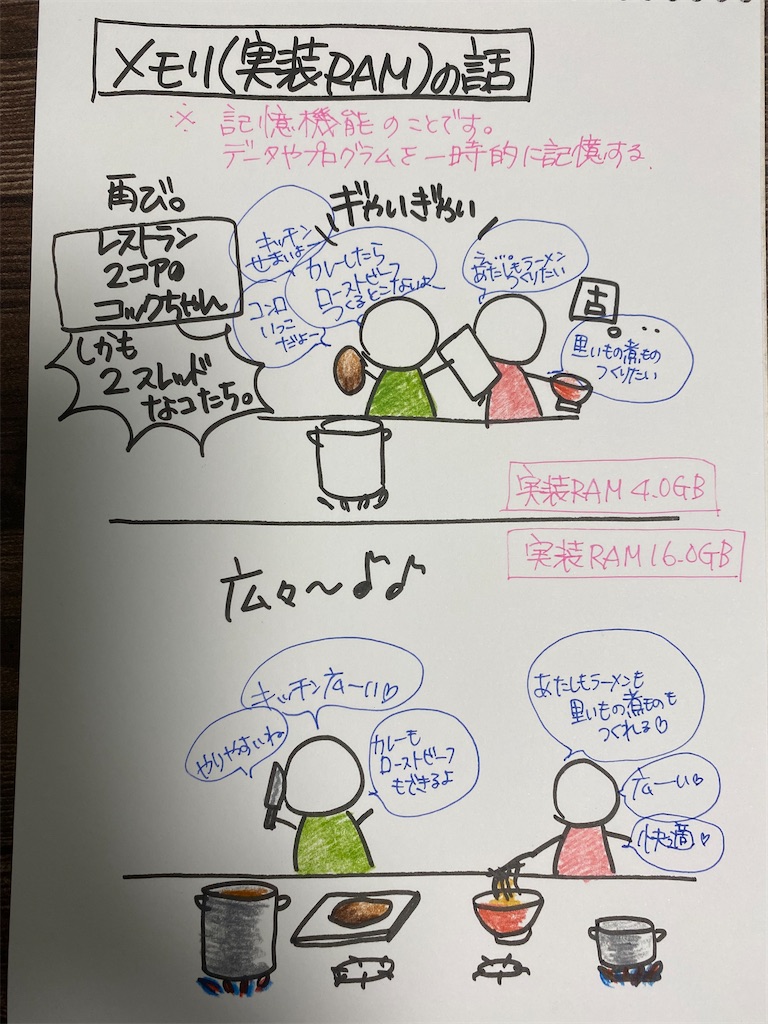 メモリ(実装RAM)の話
※ 記憶機能のことです。
データやプログラムを一時的に記憶する
再び。
レストラン
2コアの
コックちゃん
しかも
2スレッド
なコたち。
ぎゃいぎゃい
キッチン
せまいよー
カレーしたら
ローストビーフ
つくるとこないよー
コンロ
いっこ
だよー
えーっ
あたしもラーメン
つくりたい
里いもの煮もの
つくりたい
実装RAM 4.0GB
実装RAM 16.0GB
広々〜♪♪
キッチン広ーい♡
やりやすいね
カレーも
ローストビーフ
もできるよ
あたしもラーメンも
里いもの煮ものも
つくれる♡
広ーい♡
快適♡